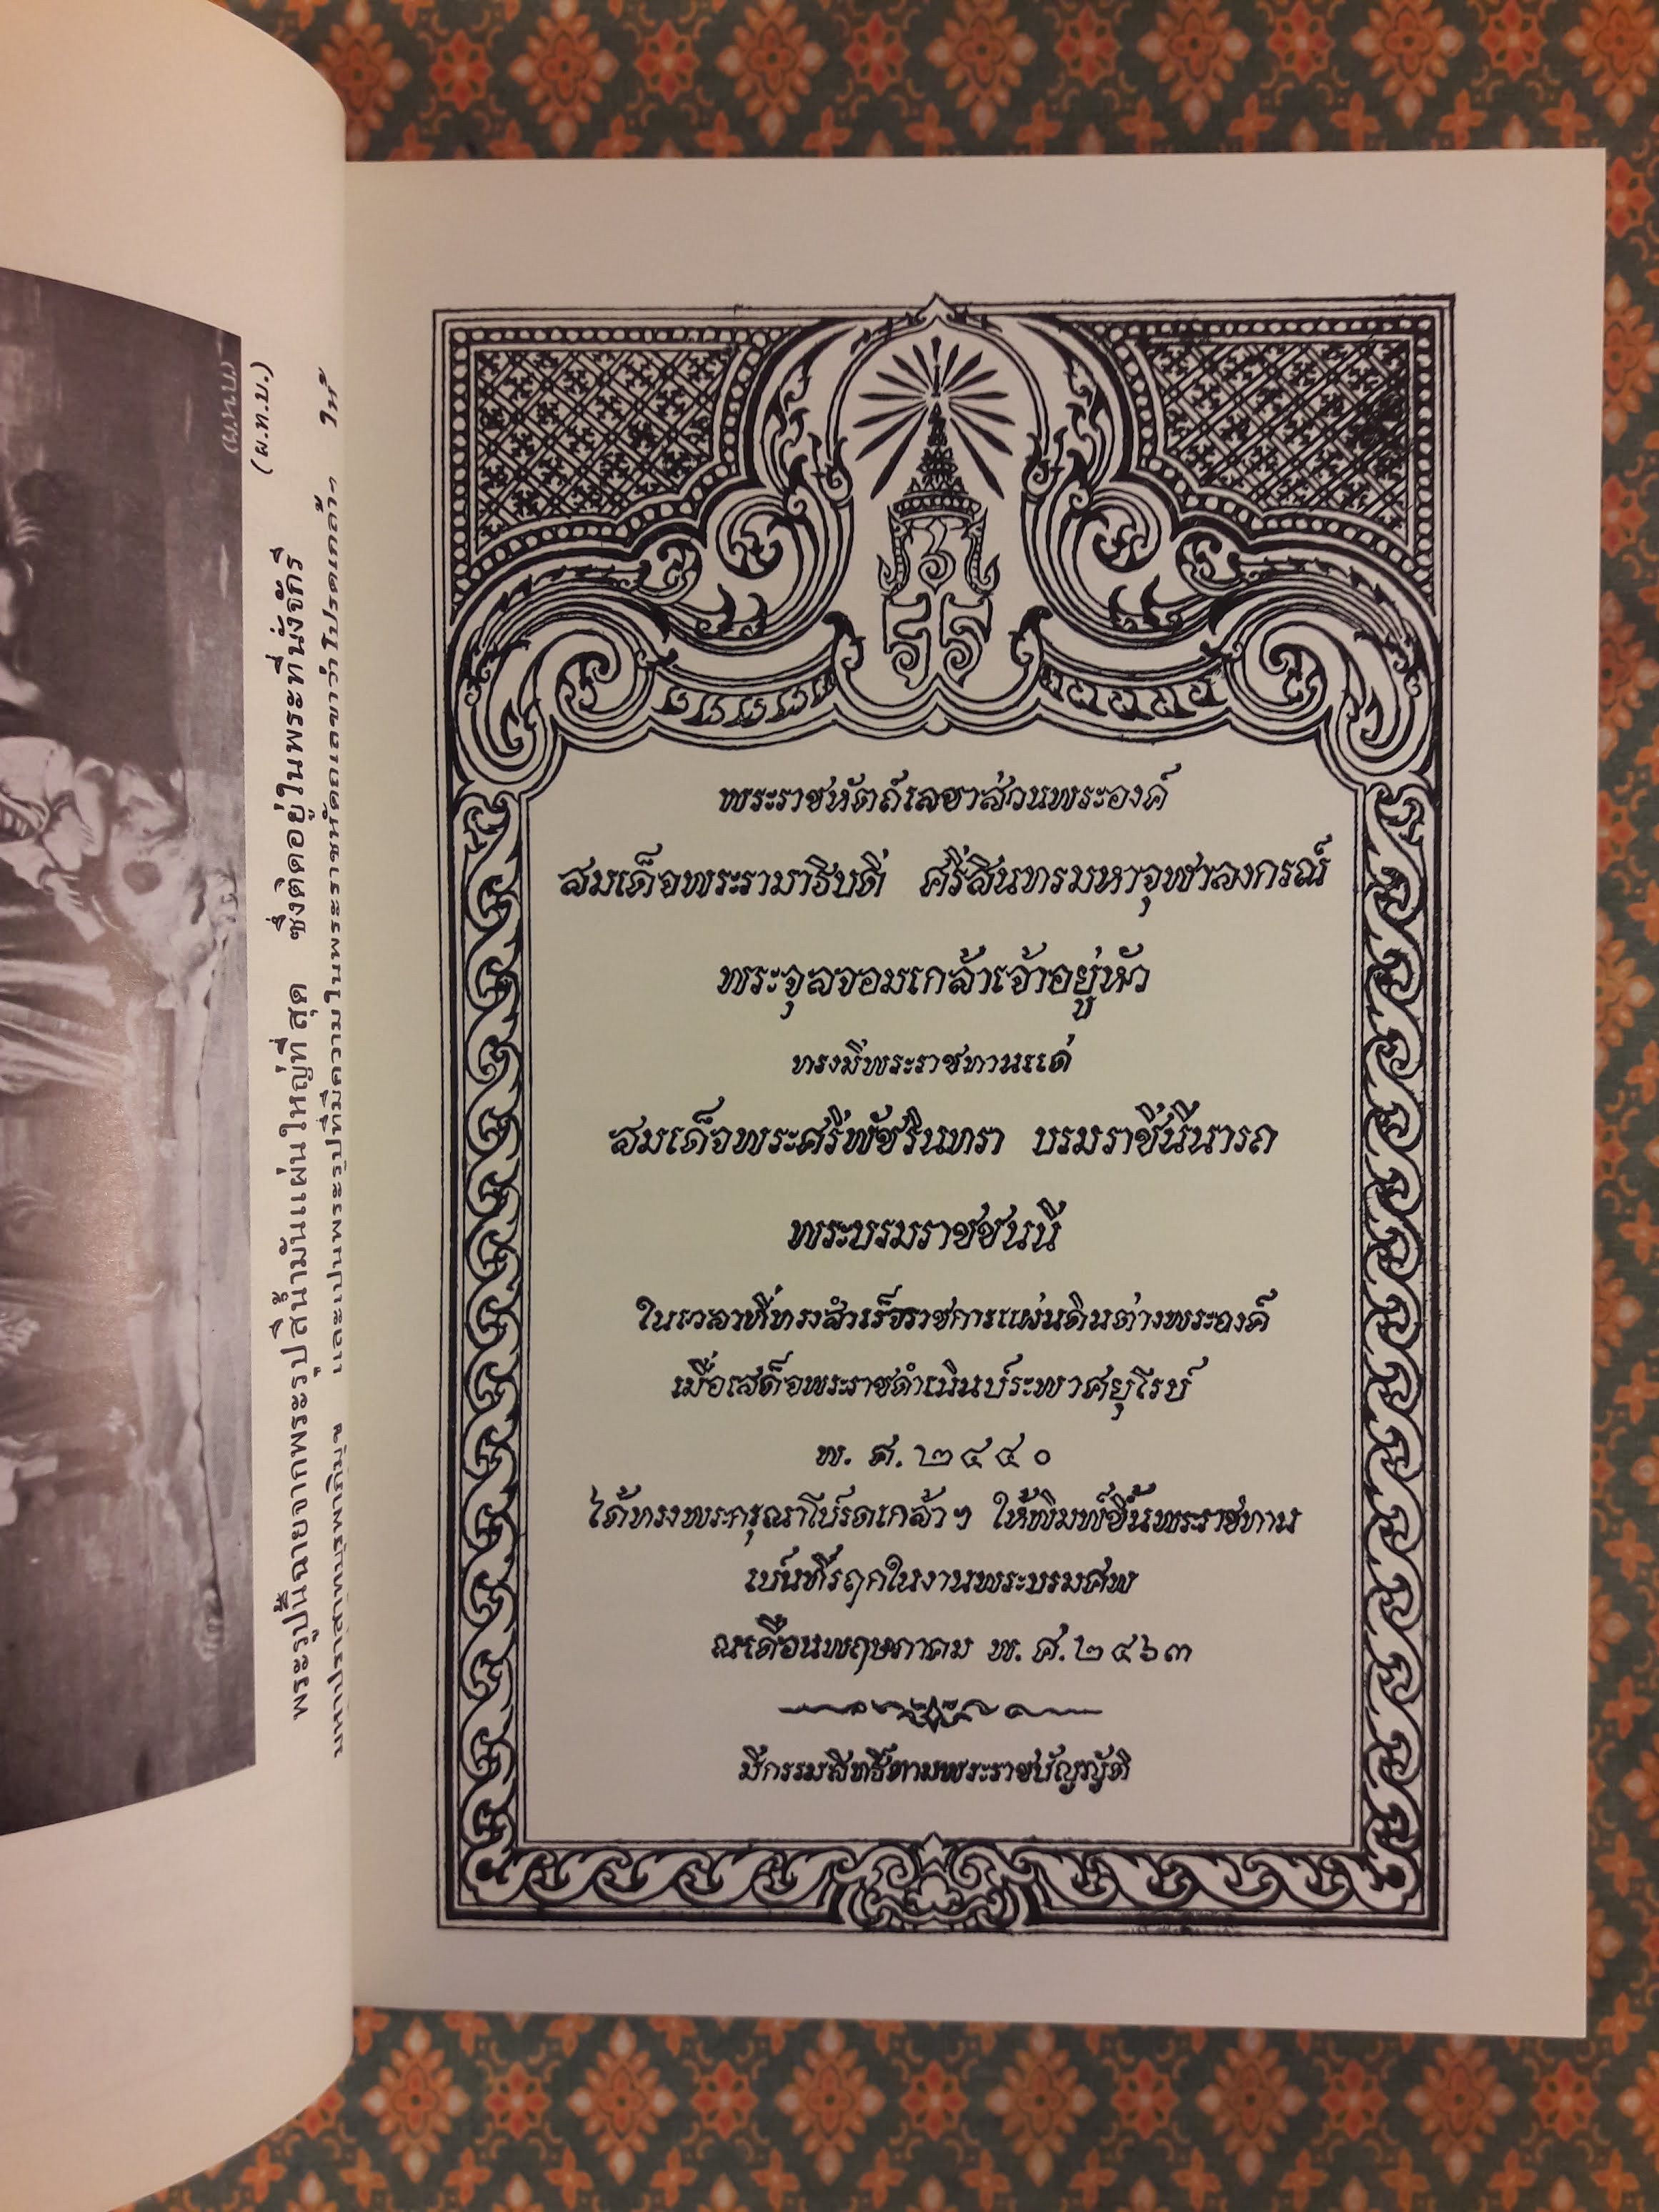 (ผ.ท.บ.)
(ผ.ท.บ.)
พระรูปนี้ฉายจากพระรูปสีน้ำมันแผ่นใหญ่ที่สุด ซึ่งติดอยู่ในพระที่นั่งจักรี
มหาปราสาทบรมพาภิมุข และเปนพระรูปที่มีความในพระราชหัตถเลขาว่าโปรดเกล้าฯ ให้
พระราชหัตถ์เลขาส่วนพระองค์
สมเด็จพระรามาธิบดี ศรีสินทรมหาจุฬาลงกรณ์
พระจุลจอมเกล้าเจ้าอยู่หัว
ทรงมีพระราชทานแด่
สมเด็จพระศรีพัชรินทรา บรมราชินีนารถ
พระบรมราชชนนี
ในเวลาที่ทรงสำเร็จราชการแผ่นดินต่างพระองค์
เมื่อเสด็จพระราชดำเนินประพาศยุโรป
พ. ศ. ๒๔๔๐
ได้ทรงพระกรุณาโปรดเกล้าฯ ให้พิมพ์ขึ้นพระราชทาน
เปนที่รฤกในงานพระบรมศพ
ณเดือนพฤษภาคม พ. ศ. ๒๔๖๓
มีกรรมสิทธิ์ตามพระราชบัญญัติ